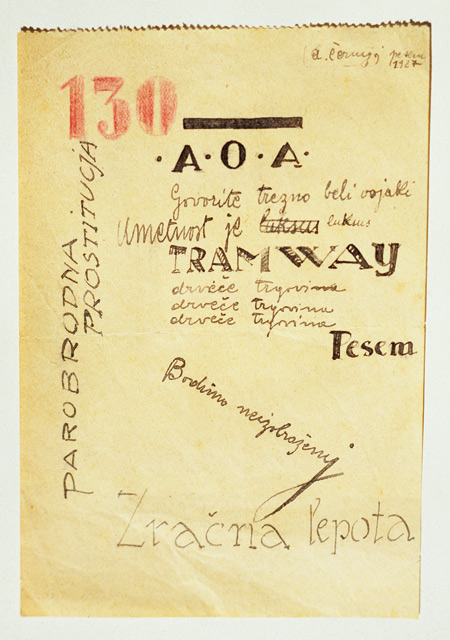 (A. Černigoj pesem
1927
130
· A · O · A ·
Govorite trezno beli vojaki
Umetnost je luksus luksus
TRAMWAY
drvéče trgovina
drvéče trgovina
drvéče trgovina
Pesem
PAROBRODNA
PROSTITUCIJA
Bodimo neizobraženi
Zračna lepota